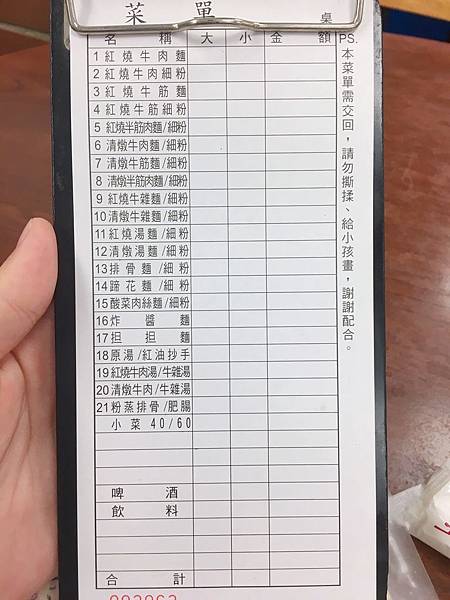 菜單 桌
名稱 大 小 金額
1 紅燒牛肉麵
2 紅燒牛肉細粉
3 紅燒牛筋麵
4 紅燒牛筋細粉
5 紅燒半筋肉麵/細粉
6 清燉牛肉麵/細粉
7 清燉牛筋麵/細粉
8 清燉半筋麵/細粉
9 紅燒牛雜麵/細粉
10 清燉牛雜麵/細粉
11 紅燒湯麵/細粉
12 清燉湯麵/細粉
13 排骨麵/細粉
14 蹄花麵/細粉
15 酸菜肉絲麵/細粉
16 炸醬麵
17 担担麵
18 原湯/紅油抄手
19 紅燒牛肉湯/牛雜湯
20 清燉牛肉/牛雜湯
21 粉蒸排骨/肥腸
小菜 40/60
啤酒
飲料
合計
PS.本菜單需交回，請勿撕揉、給小孩畫，謝謝配合。